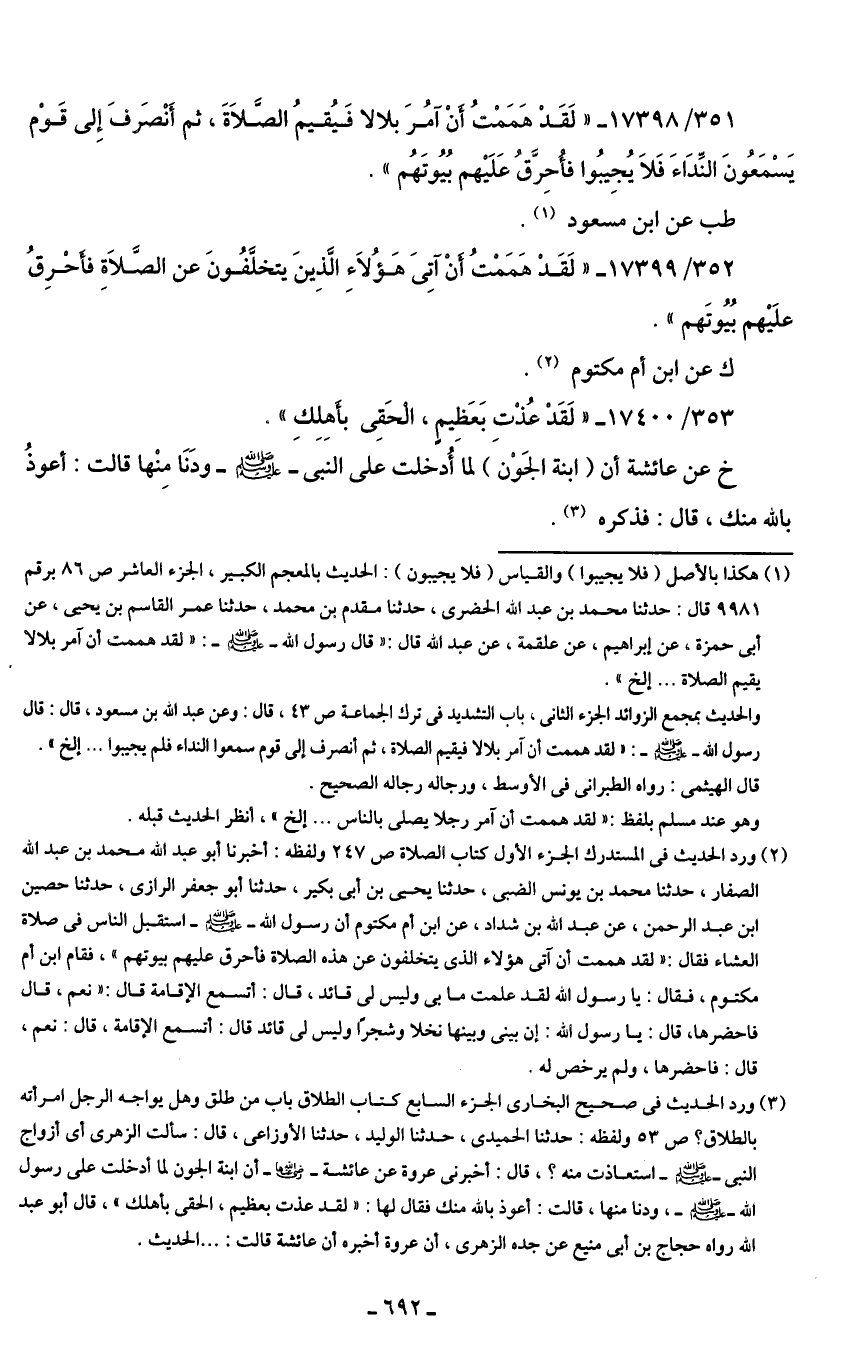 ٣٥١/ ١٧٣٩٨ـ « لَقَدْ هَمَمْتُ أَنْ آمُرَ بلالا فَيُقيمُ الصَّلاَةَ ، ثم أَنْصَرَفَ إِلى قَوْم
يَسْمَعُونَ النِّدَاءَ فَلاَ يُجِيبُوا فأُحرِّقُ عَلَيْهِم بُيُوتَهُم » .
طب عن ابن مسعود (١) .
٣٥٢/ ١٧٣٩٩ـ « لَقَدْ هَمَمْتُ أَنْ آتِىَ هَؤُلاَءِ الَّذِينَ يتخلَّفُونَ عن الصَّلاَةِ فأَحْرِقُ
علَيْهم بُيُوتَهم » .
ك عن ابن أم مكتوم (٢) .
٣٥٣/ ١٧٤٠٠ـ « لَقَدْ عُذْتِ بَعَظِيمٍ ، الْحَقِى بأَهِلِكِ » .
خ عن عائشة أن ( ابنة الجَوْن ) لما أُدخلت على النبى ـ ﷺ ـ ودَنَا مِنْها قالت : أعوذُ
بالله منك ، قال : فذكره (٣) .
(١) هكذا بالأصل ( فلا يجيبوا ) والقياس ( فلا يجيبون ) : الحديث بالمعجم الكبير ، الجزء العاشر ص ٨٦ برقم
٩٩٨١ قال : حدثنا محمد بن عبد الله الحضرى ، حدثنا مقدم بن محمد ، حدثنا عمر القاسم بن يحيى ، عن
أبى حمزة ، عن إبراهيم ، عن علقمة ، عن عبد الله قال :« قال رسول الله ـ ﷺ ـ : « لقد هممت أن آمر بلالا
يقيم الصلاة ... إلخ » .
والحديث بمجمع الزوائد الجزء الثانى ، باب التشديد فى ترك الجماعة ص ٤٣ ، قال : وعن عبد الله بن مسعود ، قال : قال
رسول الله ـ ﷺ ـ : « لقد هممت أن آمر بلالا فيقيم الصلاة ، ثم أنصرف إلى قوم سمعوا النداء فلم يجيبوا ... إلخ » .
قال الهيثمى : رواه الطبرانى فى الأوسط ، ورجاله رجاله الصحيح .
وهو عند مسلم بلفظ :« لقد هممت أن آمر رجلا يصلى بالناس ... إلخ » ، أنظر الحديث قبله .
(٢) ورد الحديث فى المستدرك الجزء الأول كتاب الصلاة ص ٢٤٧ ولفظه : أخبرنا أبو عبد الله محمد بن عبد الله
الصفار ، حدثنا محمد بن يونس الضبى ، حدثنا يحيى بن أبى بكير ، حدثنا أبو جعفر الرازى ، حدثنا حصين
ابن عبد الرحمن ، عن عبد الله بن شداد ، عن ابن أم مكتوم أن رسول الله ـ ﷺ ـ استقبل الناس فى صلاة
العشاء فقال :« لقد هممت أن آتى هؤلاء الذى يتخلفون عن هذه الصلاة فأحرق عليهم بيوتهم » ، فقام ابن أم
مكتوم ، فقال : يا رسول الله لقد علمت ما بى وليس لى قائد ، قال : أتسمع الإقامة قال :« نعم ، قال
فاحضرها، قال : يا رسول الله : إن بينى وبينها نخلا وشجرًا وليس لى قائد قال : أتسمع الإقامة ، قال : نعم ،
قال : فاحضرها ، ولم يرخص له .
(٣) ورد الحديث فى صحيح البخارى الجزء السابع كتاب الطلاق باب من طلق وهل يواجه الرجل امرأته
بالطلاق؟ ص ٥٣ ولفظه : حدثنا الحميدى ، حدثنا الوليد ، حدثنا الأوزاعى ، قال : سألت الزهرى أى أزواج
النبى ـ ﷺ ـ استعاذت منه ؟ ، قال : أخبرنى عروة عن عائشة ـ رضي الله عنها ـ أن ابنة الجون لما أدخلت على رسول
الله ـ ﷺ ـ ، ودنا منها ، قالت : أعوذ بالله منك فقال لها : « لقد عذت بعظيم ، الحقى بأهلك » ، قال أبو عبد
الله رواه حجاج بن أبى منيع عن جده الزهرى ، أن عروة أخبره أن عائشة قالت : ...الحديث .
ـ ٦٩٢ ـ